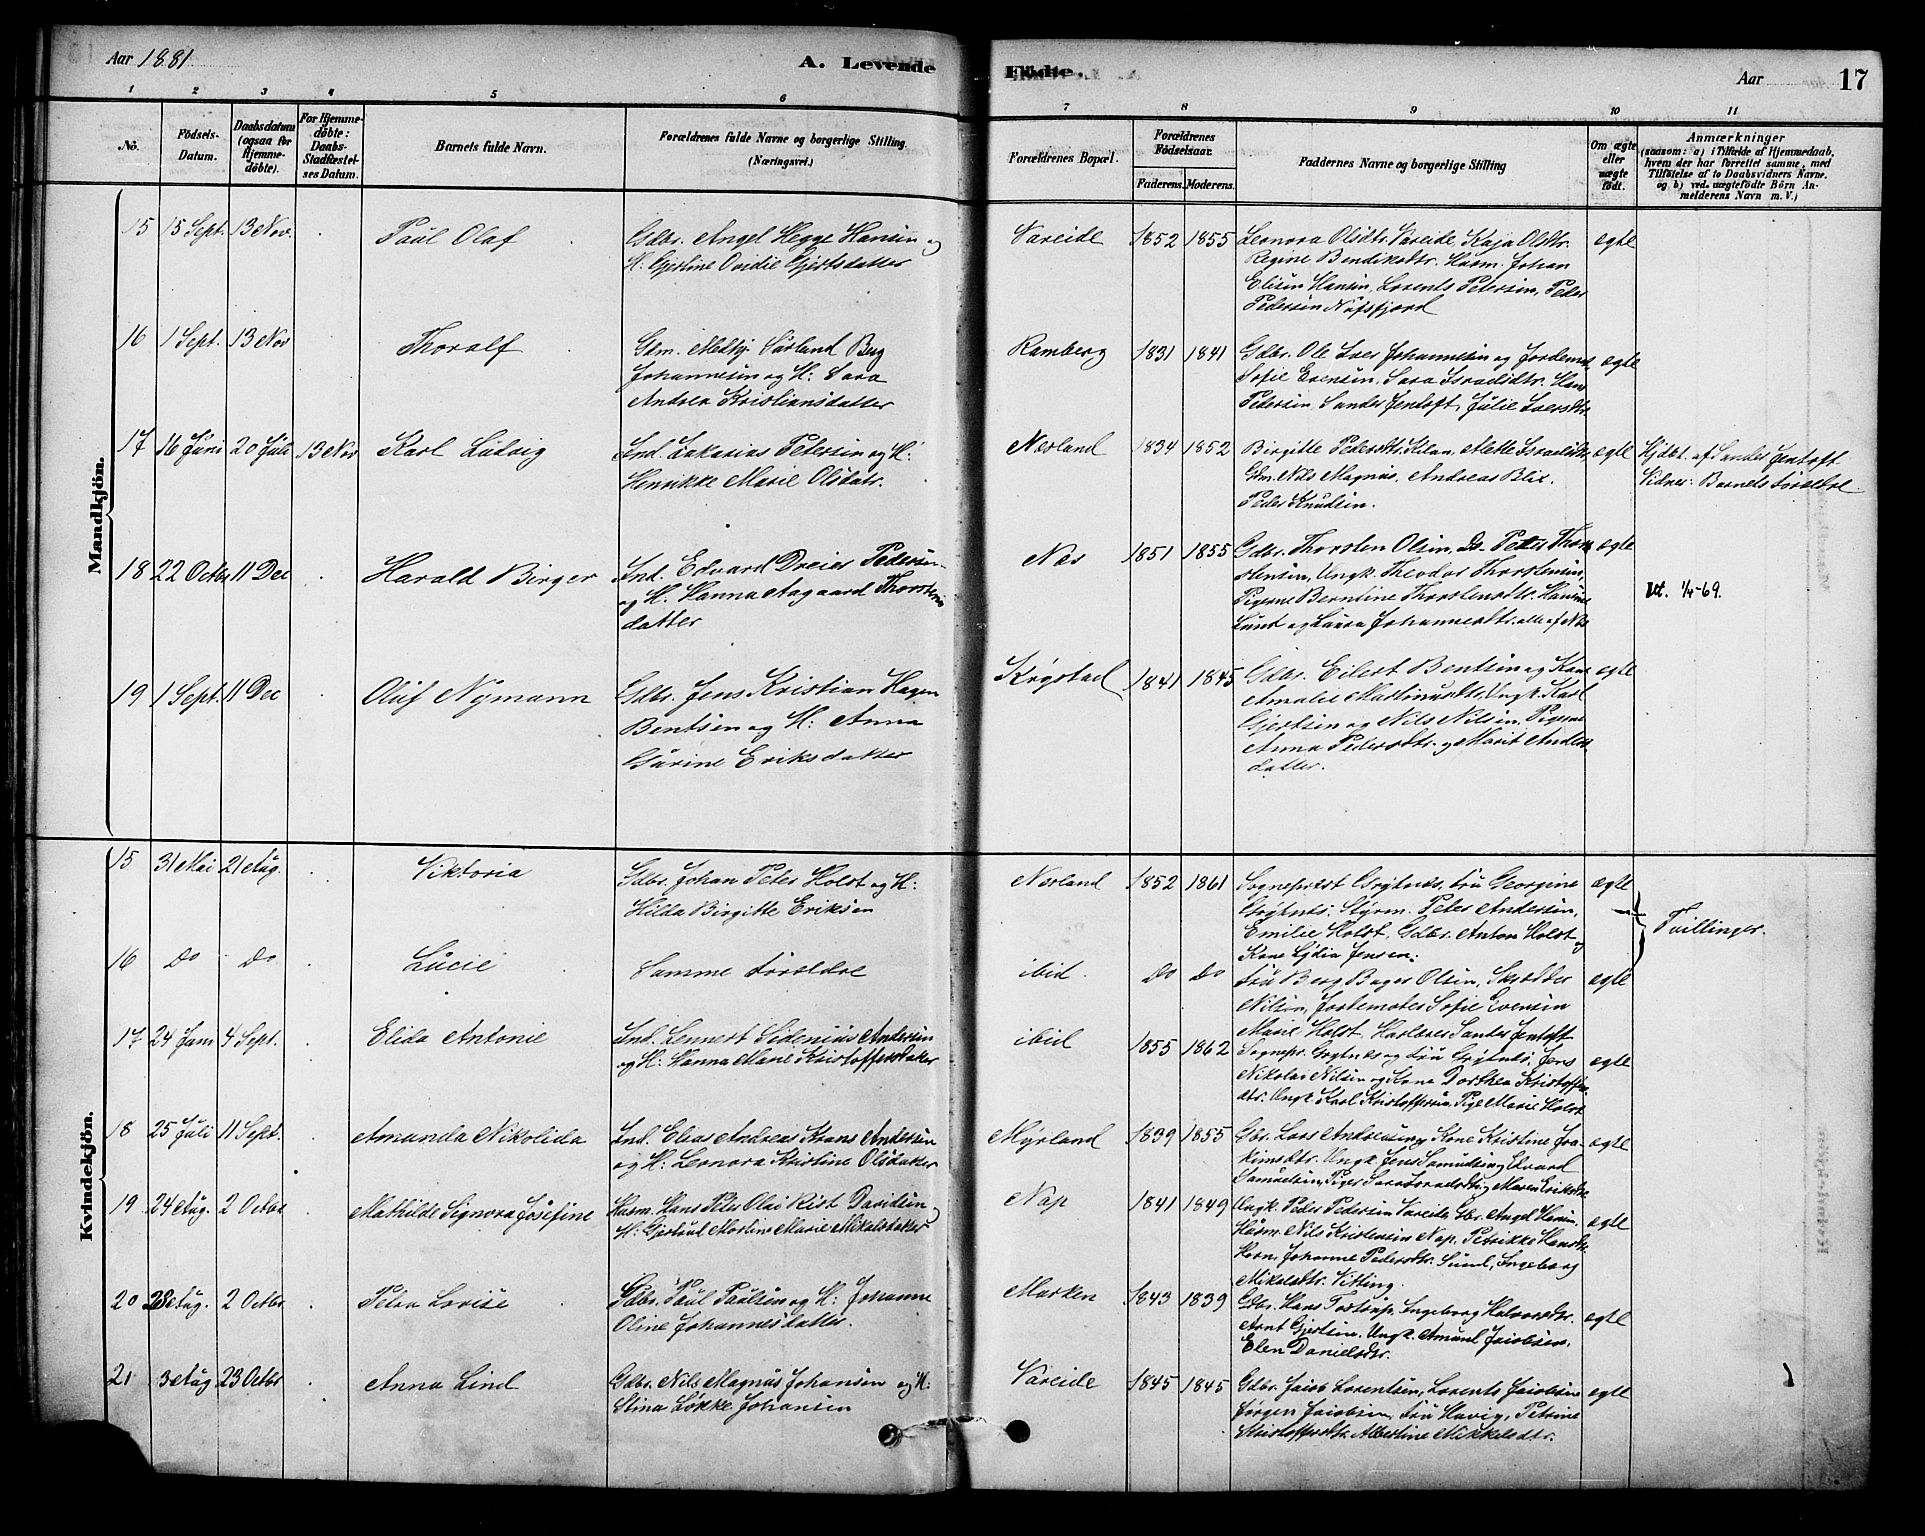 Aar 1881
A. Levende
Födte.
Aar
17
1 2 3 4 5 6 7 8 9 10 11
No.
Födsels-
Datum.
Daabsdatum
(ogsaa for
Hjemme-
döbte).
For Hjemme-
döbte:
Daabs-
Stadfæstel-
ses Datum.
Barnets fulde Navn.
Forældrenes fulde Navne og borgerlige Stilling
(Næringsvei.)
Forældrenes Bopæl.
Forældrenes
Födselsaar.
Faderens. Moderens.
Faddernes Navne og borgerlige Stilling
Om ægte
eller
uægte
födt.
Anmærkninger
(saasom: a) i Tilfælde af Hjemmedaab,
hvem der har forrettet samme, med
Tilföielse af to Daabsvidners Navne.
og b) ved uægtefödte Börn An-
melderens Navn m. V.)
Mandkjön.
15 15 Sept. 13 Nov. Paul Olaf
Gdbr. Angel Hegge Hansen og
H: Gjertine Ovidie Gjertsdatter
Vareide 1852 1855
Leonora Olsdtr. Vareide, Kaja Olsdtr.
Regine Bendiksdtr. Husm. Johan
Elisen Hansen, Lorents Petersen, Peder
Pedersen Nufsfjord
ægte
16 1 Sept. 13 Nov Thoralf
Gdm. Medhj. Sörland Berg
Johannesen og H: Sara
Andrea Kristiansdatter
Ramberg 1831 1841
Gdbr. Ole Iver Johannesen og Jordemod.
Sofie Evensen, Sara Israelsdtr. Hans
Petersen, Sander Jentoft, Julie Iversdtr
ægte
17 16 Juni 20 Juli 13 Nov Karl Ludvig
Ind. Zakarias Petersen og H:
Henrikke Marie Olsdatr.
Nerland 1834 1852
Birgitte Pedersdtr. Kilan, Mette Israelsdtr
Gdm. Nils Magnus, Andreas Blix.
Peder Knudsen.
ægte
Hjdbt. af Sander Jentoft
Vidner: Barnets Forældre
18 22 Octbr 11 Dec Harald Birger
Ind. Edvard Dreier Pedersen
og H. Hanna Aagaard Thorstens
datter
Nes 1851 1855
Gdbr. Thorsten Olsen, Do Petter Thor-
stensen, Ungk. Theodor Thorstensen,
Pigerne Berntine Thorstensdtr. Hansine
Lund og Laura Johannesdtr. alle af Nes
ægte
Utt. 1/4-69.
19 1 Sept. 11 Dec Oluf Nymann
Gdbr. Jens Kristian Hagen
Bentsen og H: Anna
Gurine Eriksdatter
Krystad 1841 1845
Gdbr. Eilert Bentsen og Kone
Amalie Martinusdtr. Ungk. Karl
Gjertsen og Nils Nilsen, Pigerne
Anna Pedersdtr. og Marit Anders
datter.
ægte
Kvindekjön.
15 31 Mai 21 Aug. Viktoria
Gdbr. Johan Peter Holst og H:
Hilda Birgitte Eriksen
Nerland 1852 1861
Sognepræst Grytnes, Fru Georgine
Grytnes, Styrm. Peter Andersen,
Emilie Holst, Gdbr. Anton Holst og
Kone Lydia Jensen.
ægte
Tvillinger.
16 Do Do Lucie
Samme Forældre
ibid. Do Do
Fru Berg, Bager Olsen, Skrædder
Nilsen, Jordemoder Sofie Evensen
Marie Holst, Handler Sander Jentoft
ægte
17 24 Juni 4 Sept. Elida Antonie
Ind. Lennert Sidenius Andersen
og H: Hanna Marie Kristoffersdatter
ibid 1855 1862
Sognepr. Grytnes og Fru Grytnes, Jens
Nikolai Nilsen og Kone Dorthea Kristoffers
dtr. Ungk. Karl Kristoffersen, Pige Marie Holst
ægte
18 25 Juli 11 Sept. Amanda Nikolida
Ind. Elias Andreas Krans Andersen
og H: Leonora Kristine Olsdatter
Myrland 1839 1855
Gbr. Lars Andreasen og Kone Kristine Joa-
kimsdtr. Ungk. Jens Samuelsen og Edvard
Samuelsen, Piger Sara Israelsdtr og Maren Eriksdtr
ægte
19 24 Aug. 2 Octbr Mathilde Signora Josefine
Husm. Hans Peter Olai Rist Davidsen og
H: Gjertrud Mortine Marie Mikelsdatter
Nap 1841 1849
Ungk. Peder Pedersen Vareide, Gbr. Angel Hansen,
Husm. Nils Kristensen Nap, Petrikke Hansdtr.
Horn, Johanne Pedersdtr. Sund, Ingeborg
Mikelsdtr. Vitting.
ægte
20 28 Aug. 2 Octbr. Petra Lovise
Gdbr. Paul Paulsen og H: Johanne
Oline Johannesdatter.
Marken 1843 1839
Gdbr. Hans Tostrup, Ingeborg Halvorsdtr.
Arnt Gjertsen, Ungk. Amund Jacobsen,
Elen Danielsdtr.
ægte
21 3 Aug 23 Octbr Anna Lind
Gdbr. Nils Magnus Johansen og H:
Stina Løkke Johansen
Vareide 1845 1845
Gdbr. Jacob Lorentsen, Lorents Jacobsen
Jørgen Jacobsen, Fru Havig, Petrine
Kristoffersdtr. Albertine Mikkelsdtr.
ægte